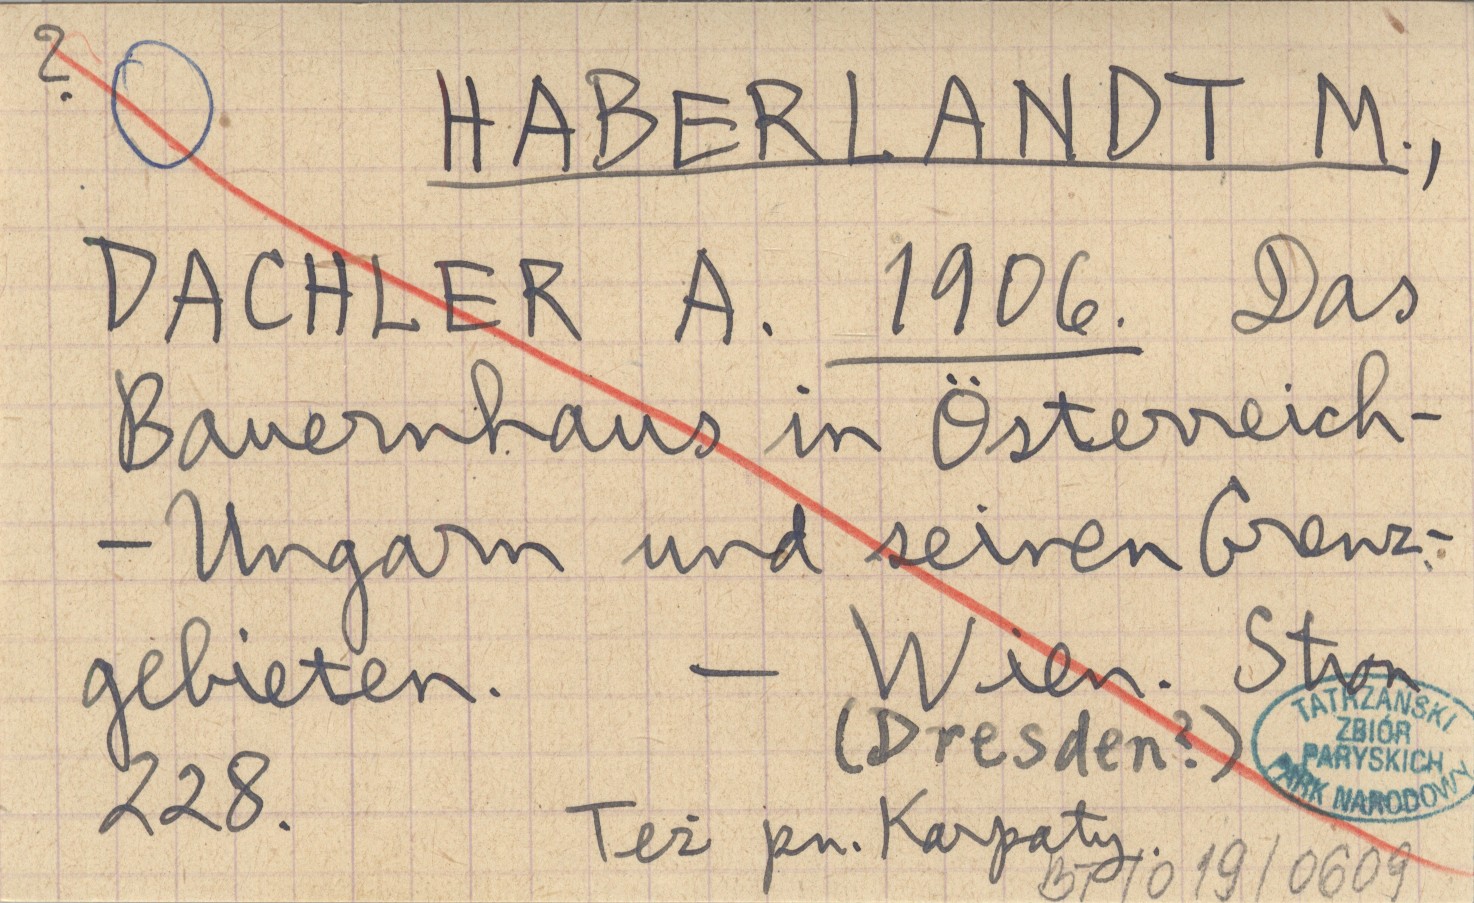 ?
HABERLANDT M.,
DACHLER A. 1906. Das
Bauernhaus in Österreich-
- Ungarn und seinen Grenz-
gebieten. — Wien. Stron
(Dresden?)
228.
Też pn. Karpaty.
TATRZAŃSKI
ZBIÓR
PARYSKICH
PARK NARODOWY
BT/O 19/0609